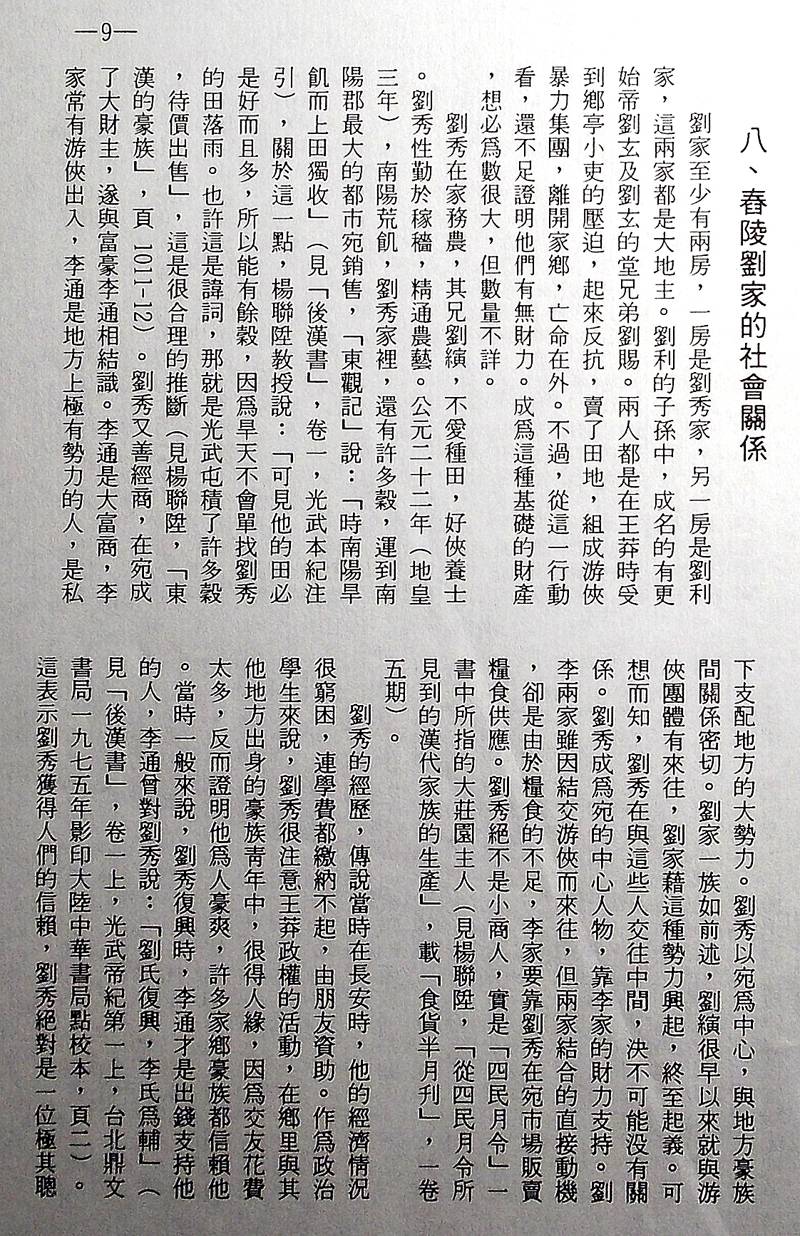 —9—
八、舂陵劉家的社會關係
劉家至少有兩房，一房是劉秀家，另一房是劉利
家，這兩家都是大地主。劉利的子孫中，成名的有更
始帝劉玄及劉玄的堂兄弟劉賜。兩人都是在王莽時受
到鄉亭小吏的壓迫，起來反抗，賣了田地，組成游俠
暴力集團，離開家鄉，亡命在外。不過，從這一行動
看，還不足證明他們有無財力。成爲這種基礎的財產
，想必爲數很大，但數量不詳。
劉秀在家務農，其兄劉縯，不愛種田，好俠養士
。劉秀性勤於稼穡，精通農藝。公元二十二年（地皇
三年），南陽荒飢，劉秀家裡，還有許多穀，運到南
陽郡最大的都市宛銷售，「東觀記」說：「時南陽旱
飢而上田獨收」（見「後漢書」，卷一，光武本紀注
引），關於這一點，楊聯陞教授說：「可見他的田必
是好而且多，所以能有餘穀，因爲旱天不會單找劉秀
的田落雨。也許這是諱詞，那就是光武屯積了許多穀
，待價出售」，這是很合理的推斷（見楊聯陞，「東
漢的豪族」，頁 1011－12）。劉秀又善經商，在宛成
了大財主，遂與富豪李通相結識。李通是大富商，李
家常有游俠出入，李通是地方上極有勢力的人，是私
下支配地方的大勢力。劉秀以宛爲中心，與地方豪族
間關係密切。劉家一族如前述，劉縯很早以來就與游
俠團體有來往，劉家藉這種勢力興起，終至起義。可
想而知，劉秀在與這些人交往中間，決不可能没有關
係。劉秀成爲宛的中心人物，靠李家的財力支持。劉
李兩家雖因結交游俠而來往，但兩家結合的直接動機
，卻是由於糧食的不足，李家要靠劉秀在宛市場販賣
糧食供應。劉秀絕不是小商人，實是「四民月令」一
書中所指的大莊園主人（見楊聯陞，「從四民月令所
見到的漢代家族的生產」，載「食貨半月刋」，一卷
五期）。
劉秀的經歷，傳說當時在長安時，他的經濟情況
很窮困，連學費都繳納不起，由朋友資助。作爲政治
學生來說，劉秀很注意王莽政權的活動，在鄉里與其
他地方出身的豪族靑年中，很得人緣，因爲交友花費
太多，反而證明他爲人豪爽，許多家鄉豪族都信賴他
。當時一般來說，劉秀復興時，李通才是出錢支持他
的人，李通曾對劉秀說：「劉氏復興，李氏爲輔」（
見「後漢書」，卷一上，光武帝紀第一上，台北鼎文
書局一九七五年影印大陸中華書局點校本，頁二）。
這表示劉秀獲得人們的信賴，劉秀絕對是一位極其聰